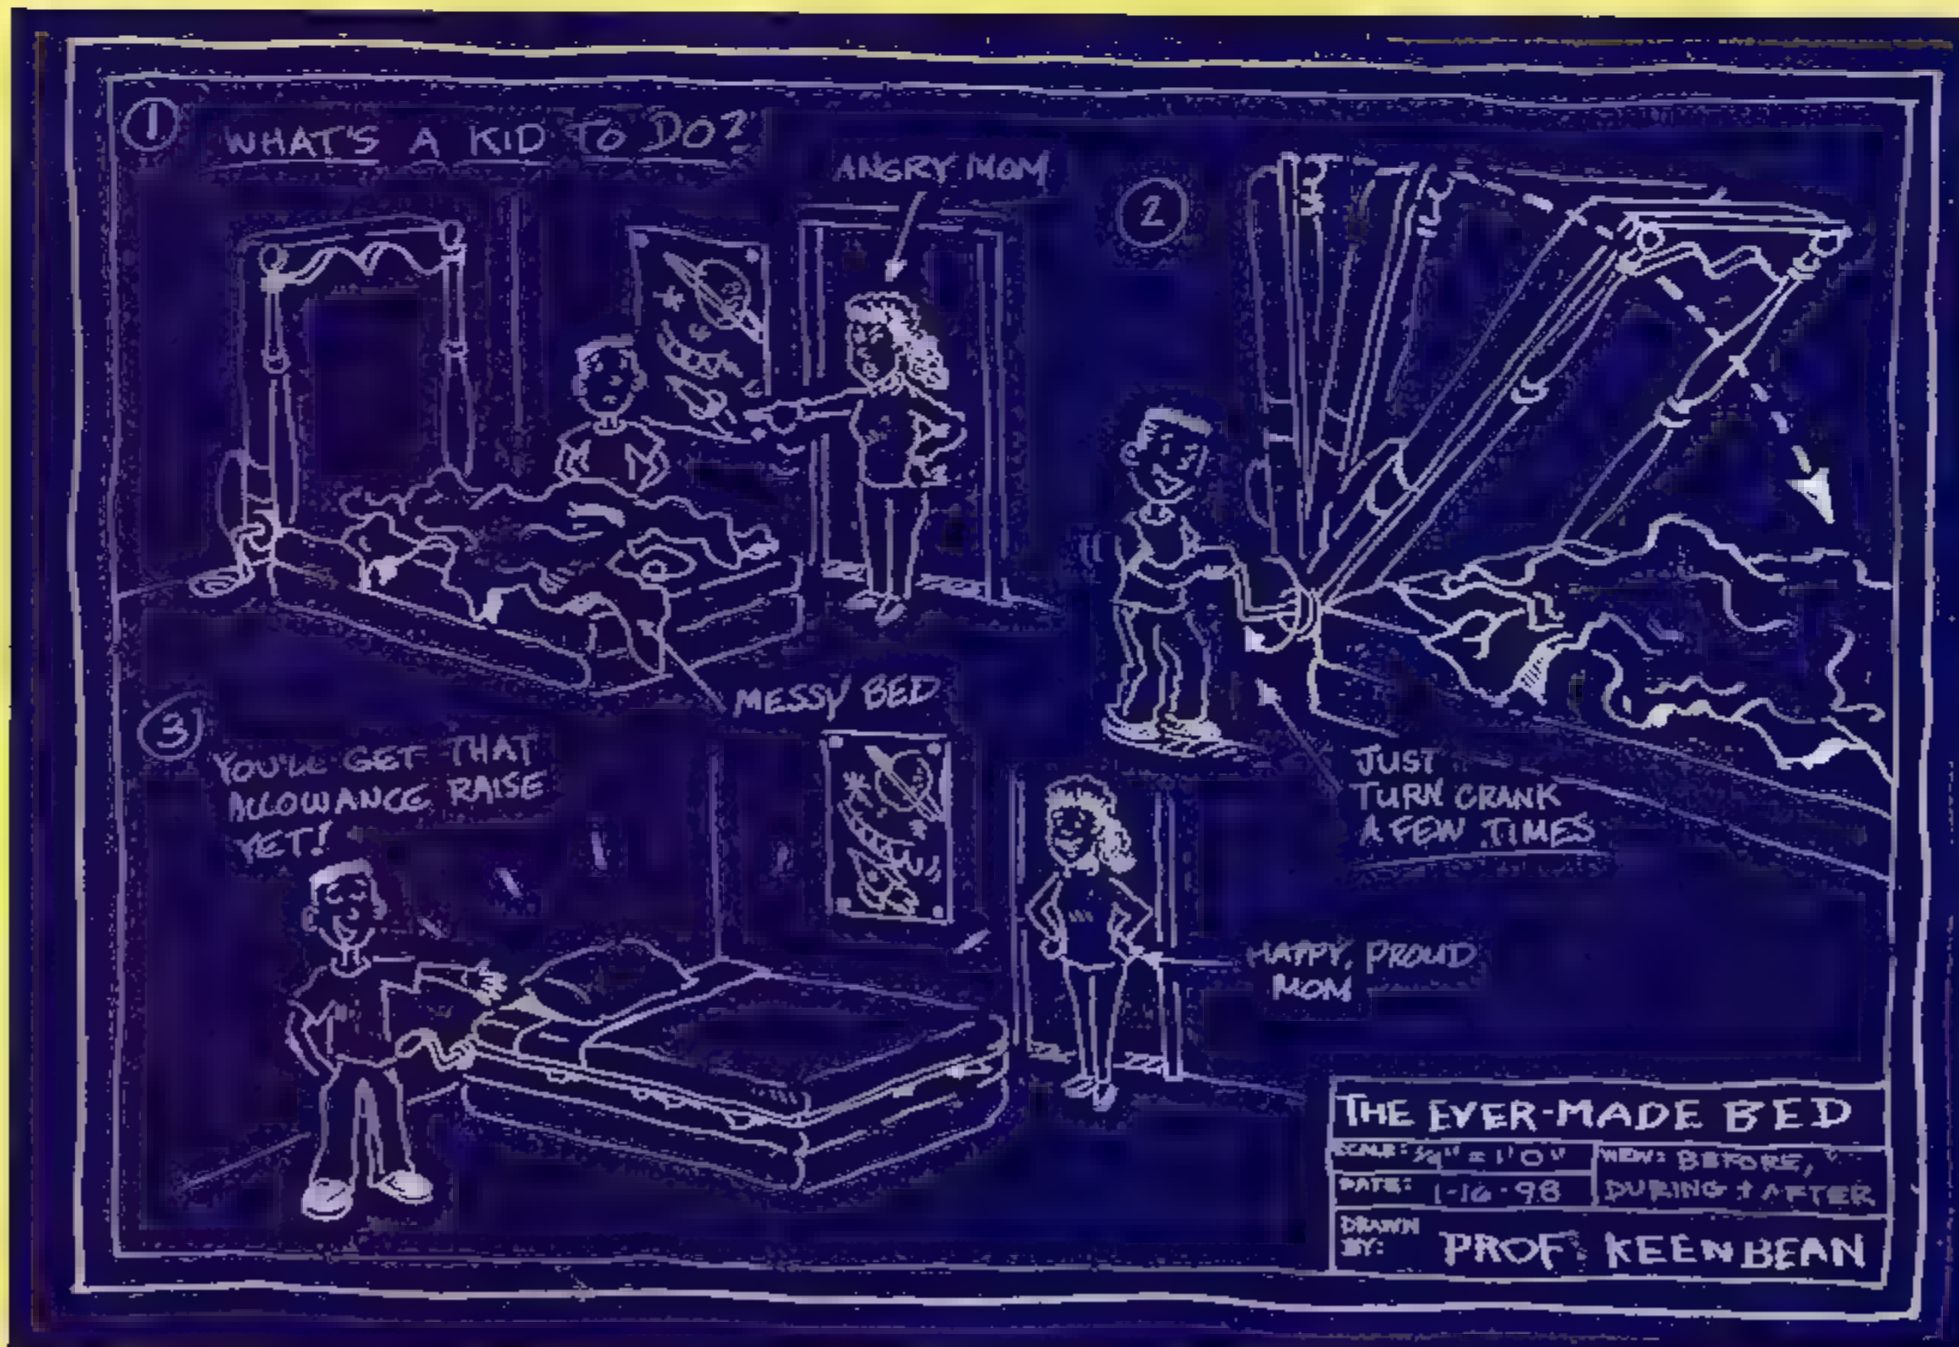 1
WHAT'S A KID TO DO?
ANGRY MOM
MESSY BED
2
JUST
TURN CRANK
A FEW TIMES
3
YOU'LL GET THAT
ALLOWANCE RAISE
YET!
HAPPY, PROUD
MOM
THE EVER-MADE BED
SCALE: 3/4" = 1'0"
VIEW: BEFORE,
DURING + AFTER
DATE: 1-16-98
DRAWN
BY: PROF. KEENBEAN